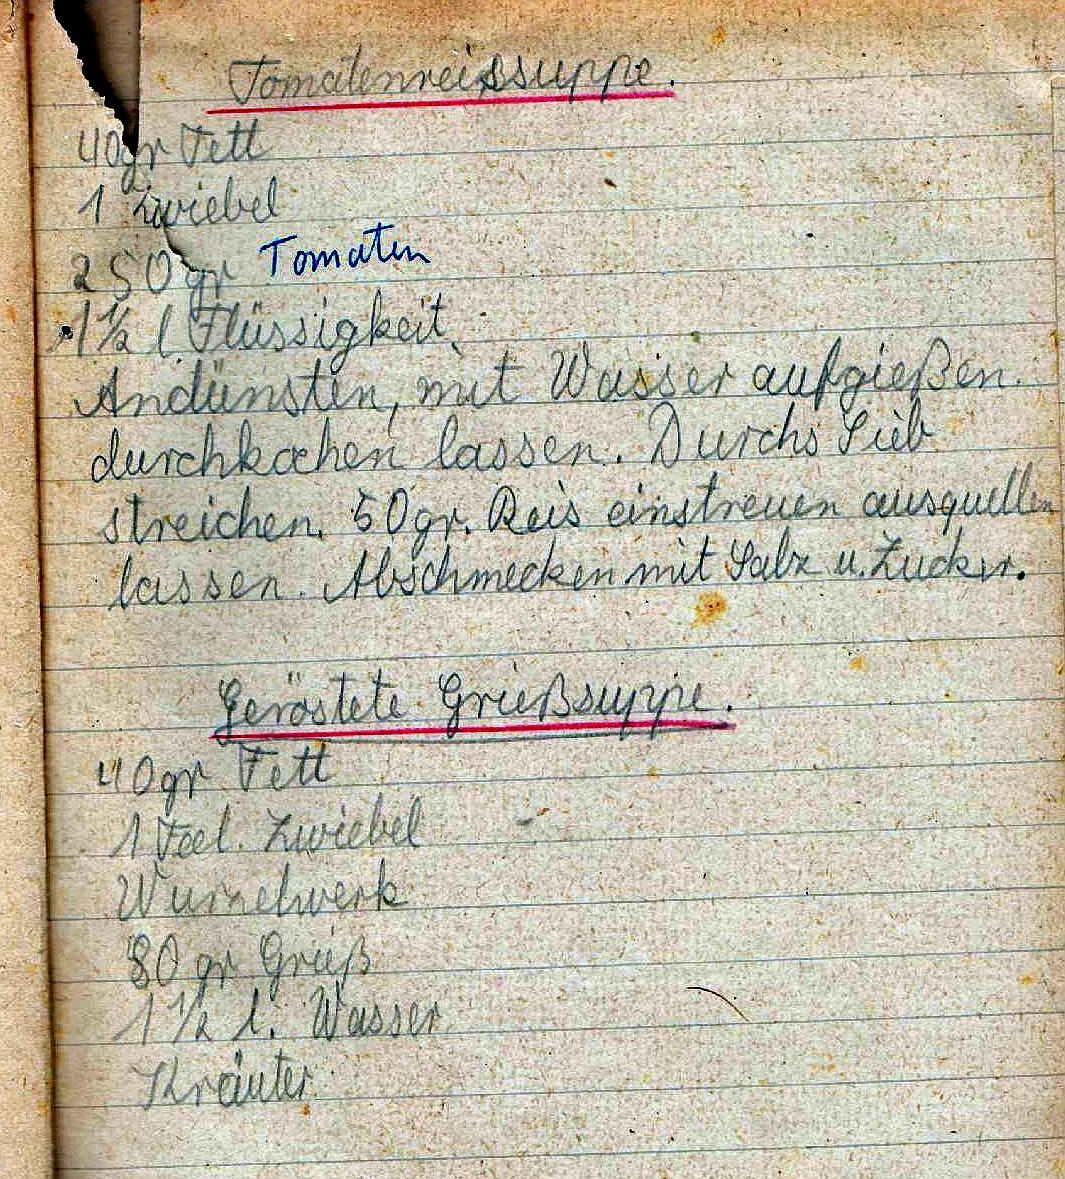 Tomatenreissuppe.
40gr Fett
1 Zwiebel
250gr Tomaten
1½ l Flüssigkeit
Andünsten, mit Wasser aufgießen.
durchkochen lassen. Durchs Sieb
streichen. 50gr. Reis einstreuen ausquellen
lassen. Abschmecken mit Salz u. Zucker.
Geröstete Grießsuppe.
40gr Fett
1 Zwiebel
Wurzelwerk
80 gr Grieß
1½ l. Wasser
Kräuter